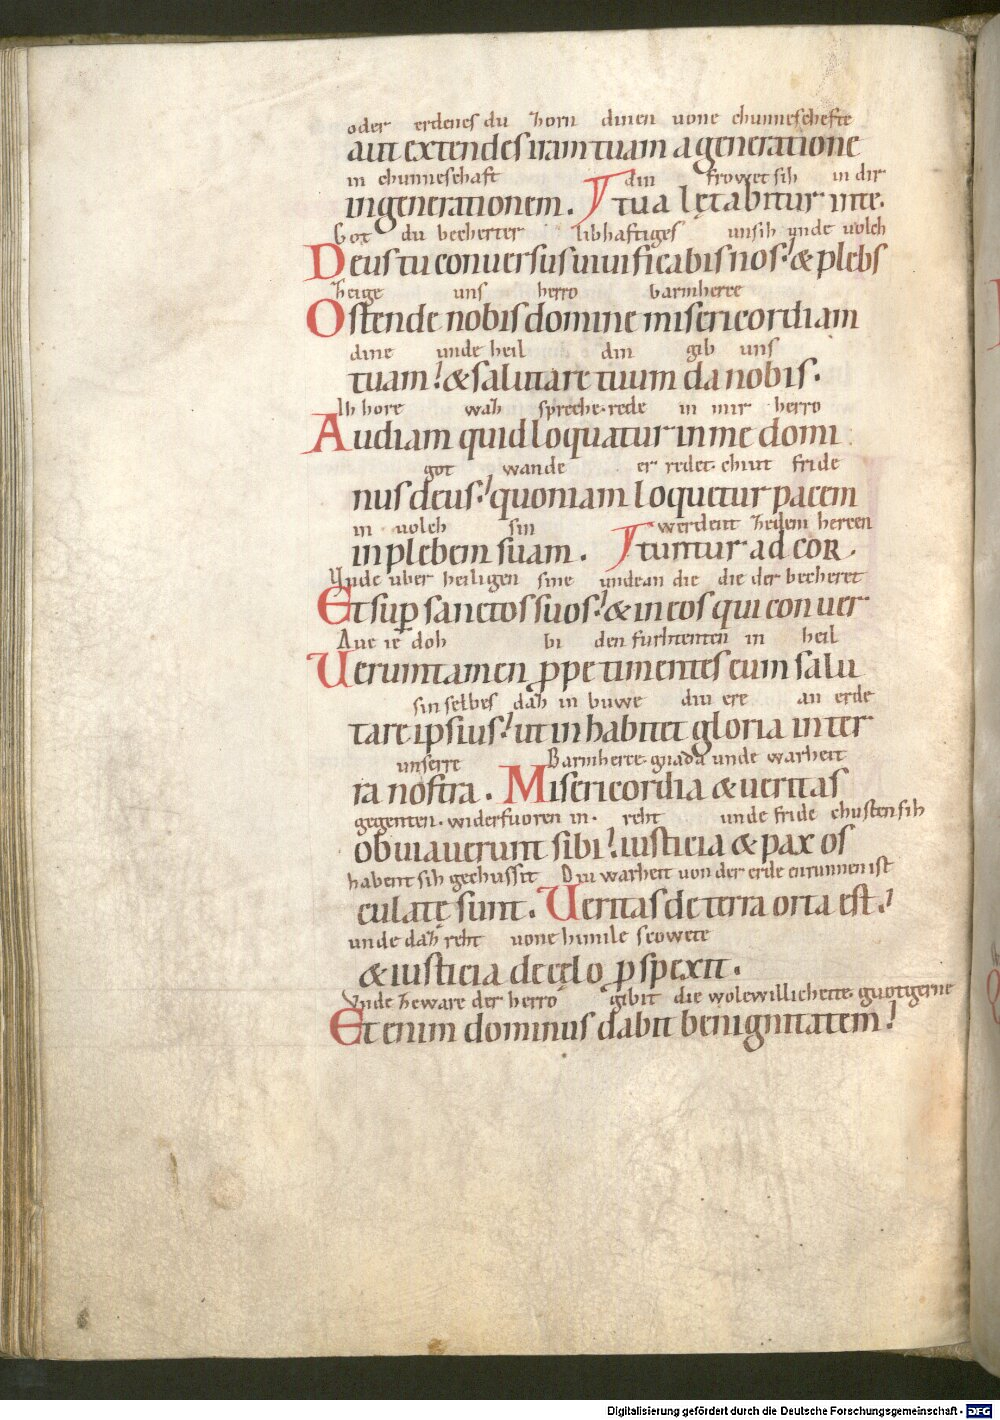 oder erdenes du zorn dinen uone chunneschefte
aut extendes iram tuam a generatione
in chunneschaft din frowet sih in dir
in generationem. tua lętabitur in te.
Got du becherter libhaftiges unsih unde uolch
Deus tu conuersus uiuificabis nos: & plebs
Zeige uns herro barmherce
Ostende nobis domine misericordiam
dine unde heil din gib uns
tuam: & salutare tuum da nobis.
Ih hore waz spreche. rede in mir herro
Audiam quid loquatur in me domi
got wande er redet. chiut fride
nus deus: quoniam loquetur pacem
in uolch sin werdent zedem hercen
in plebem suam. tuntur ad cor.
Unde uber heiligen sine unde an die die der becheret
Et sup sanctos suos: & in eos qui conuer
Aue ie doh bi den furhtenten in heil
Ueruntamen ppe timentes eum salu
sin selbes daz in buwe diu ere an erde
tare ipsius: ut inhabitet gloria in ter
unserre Barmherce. gnada unde warheit
ra nostra. Misericordia & ueritas
gegenten. widerfuoren in. reht unde fride chusten sih
obuiauerunt sibi: iusticia & pax os
habent sih gechussit Diu warheit uon der erde enrunnen ist
culatę sunt. Ueritas de terra orta est:
unde daz reht uone himile scowete
& iusticia de cęlo pspexit.
Unde zeware der herro gibit die wolewillichette. guotgerne
Etenim dominus dabit benignitatem:
Digitalisierung gefördert durch die Deutsche Forschungsgemeinschaft - DFG